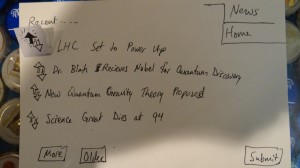 Recent....
News
Home
LHC Set to Power Up
Dr. Blah Recieves Nobel for Quantum Discovery
New Quantum Gravity Theory Proposed
Science Great Dies at 94
More
Older
Submit